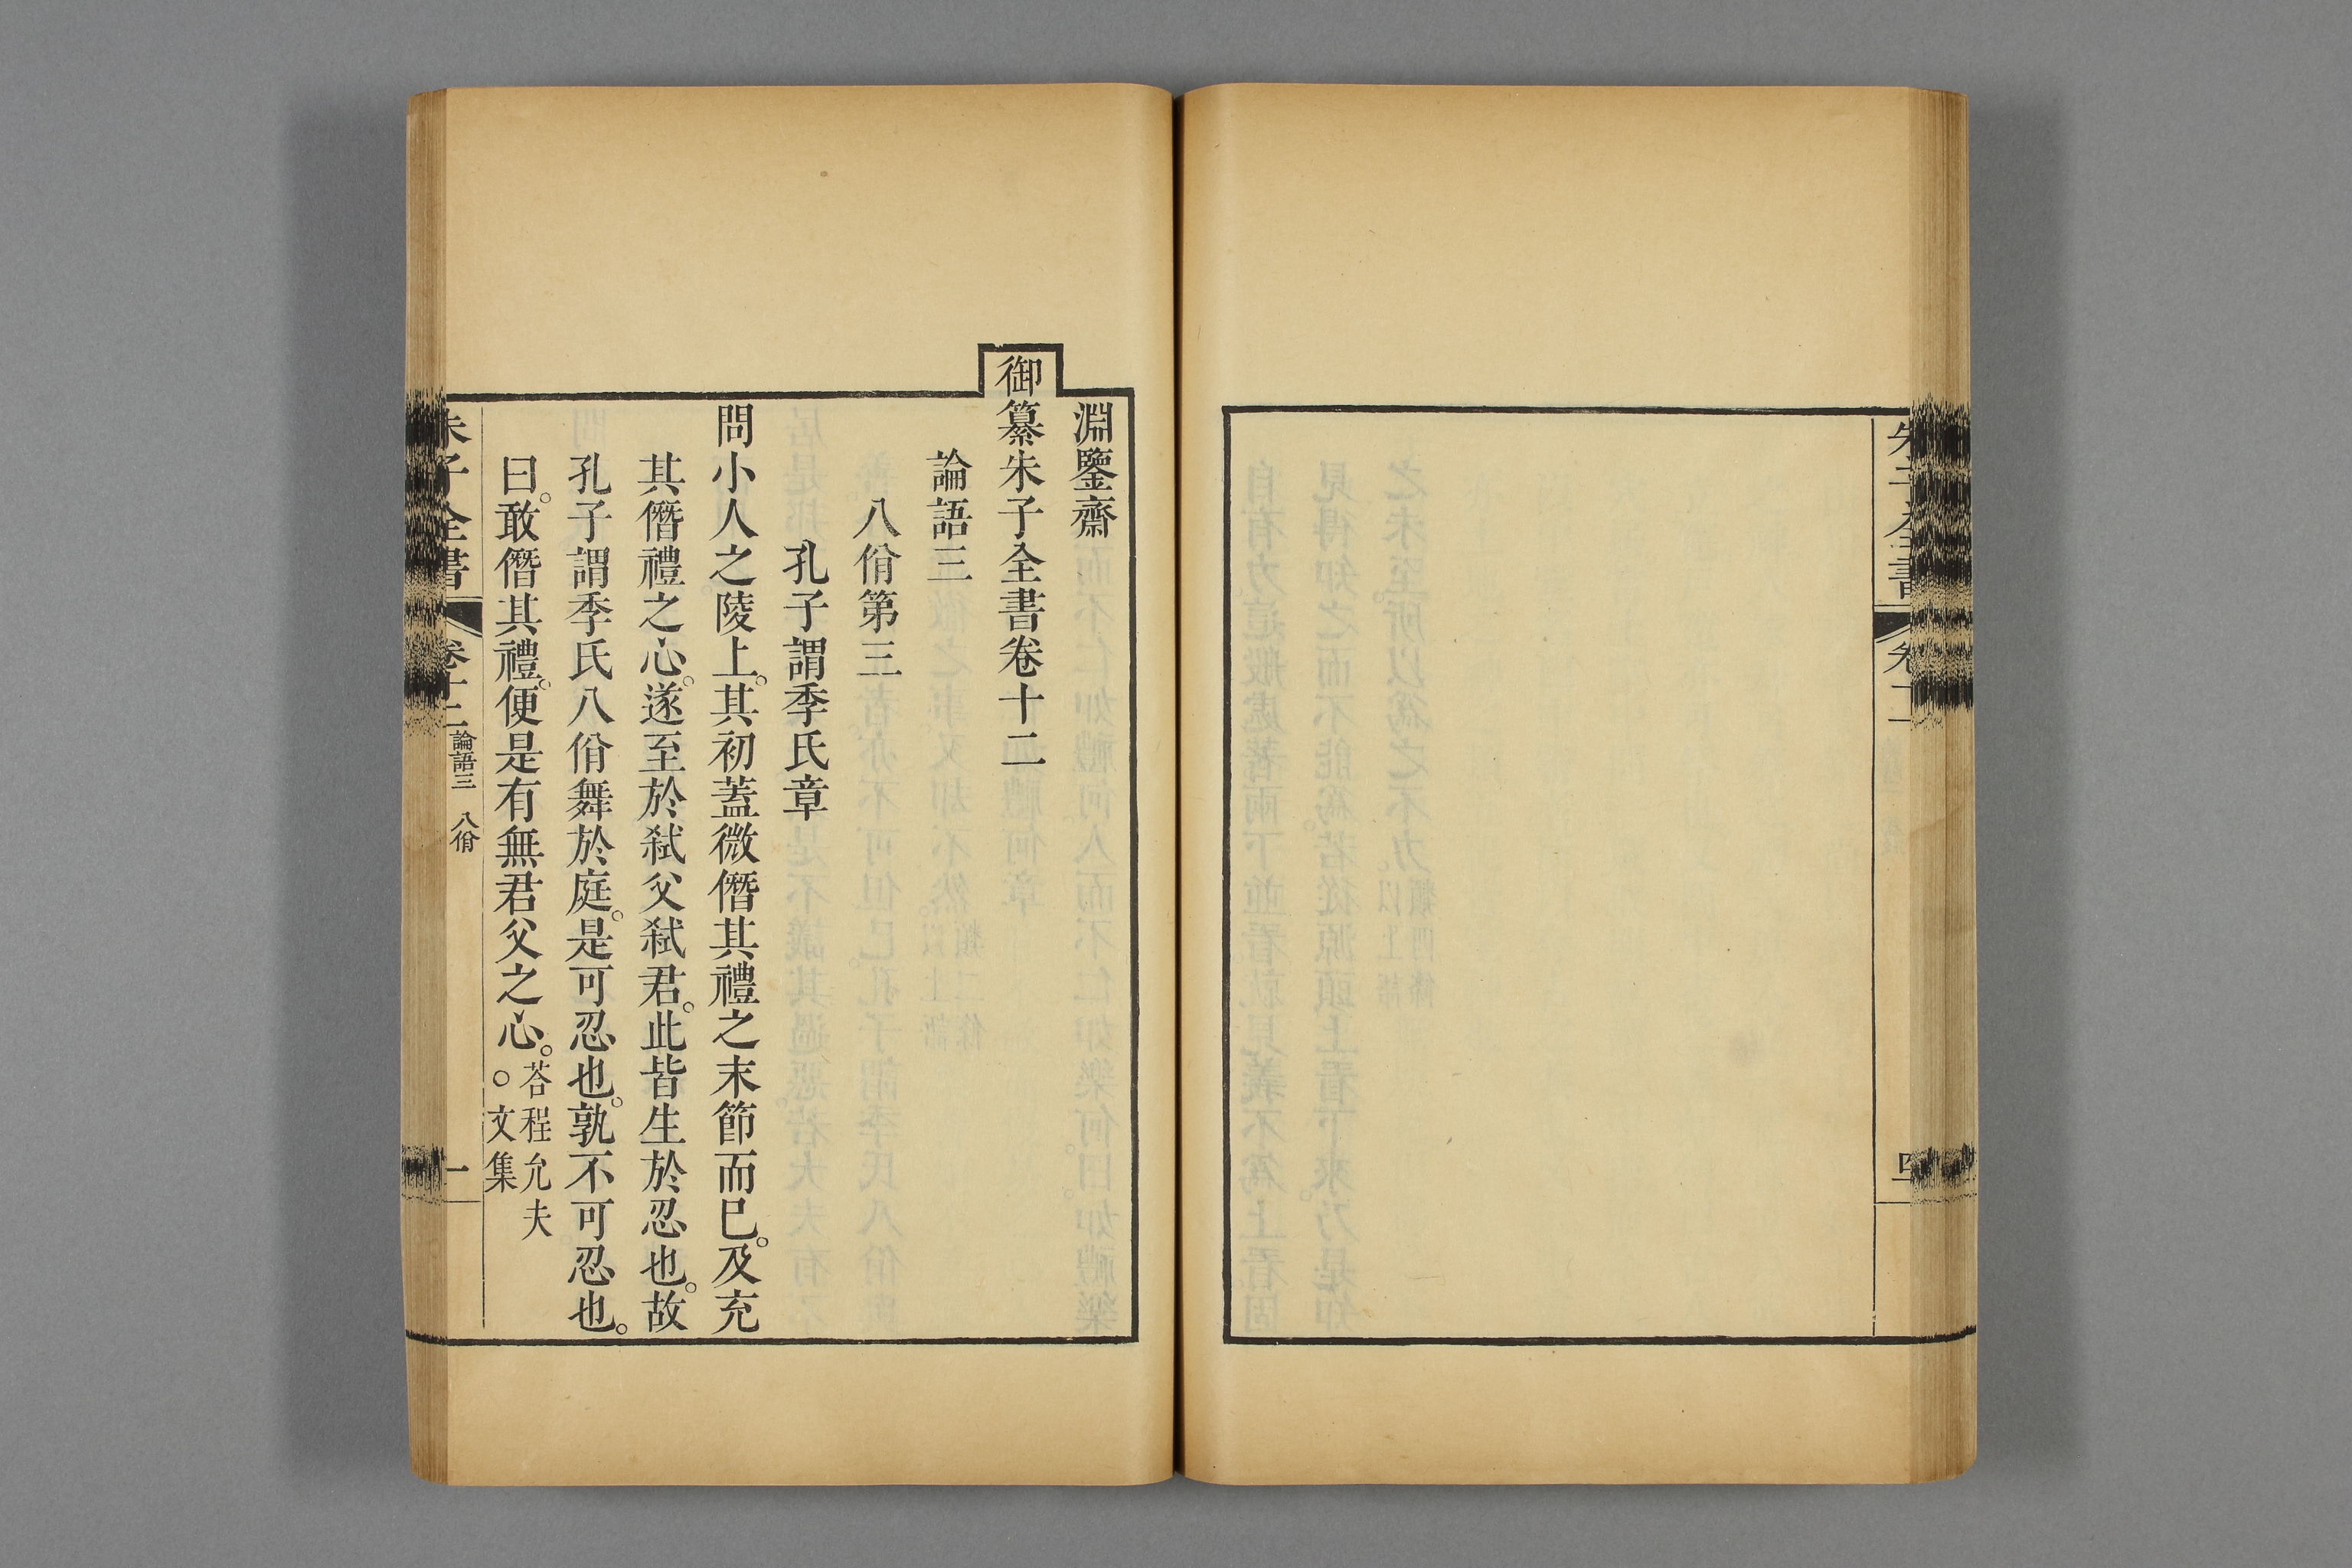 朱子全書 卷十一
四
淵鑒齋
御纂朱子全書卷十二
論語三
八佾第三
孔子謂季氏章
問小人之陵上。其初蓋微僭其禮之末節而已。及充
其僭禮之心。遂至於弒父弒君。此皆生於忍也。故
孔子謂季氏八佾舞於庭。是可忍也。孰不可忍也。
曰。敢僭其禮。便是有無君父之心。
荅程允夫
○文集
朱子全書 卷十二 論語三 八佾 一